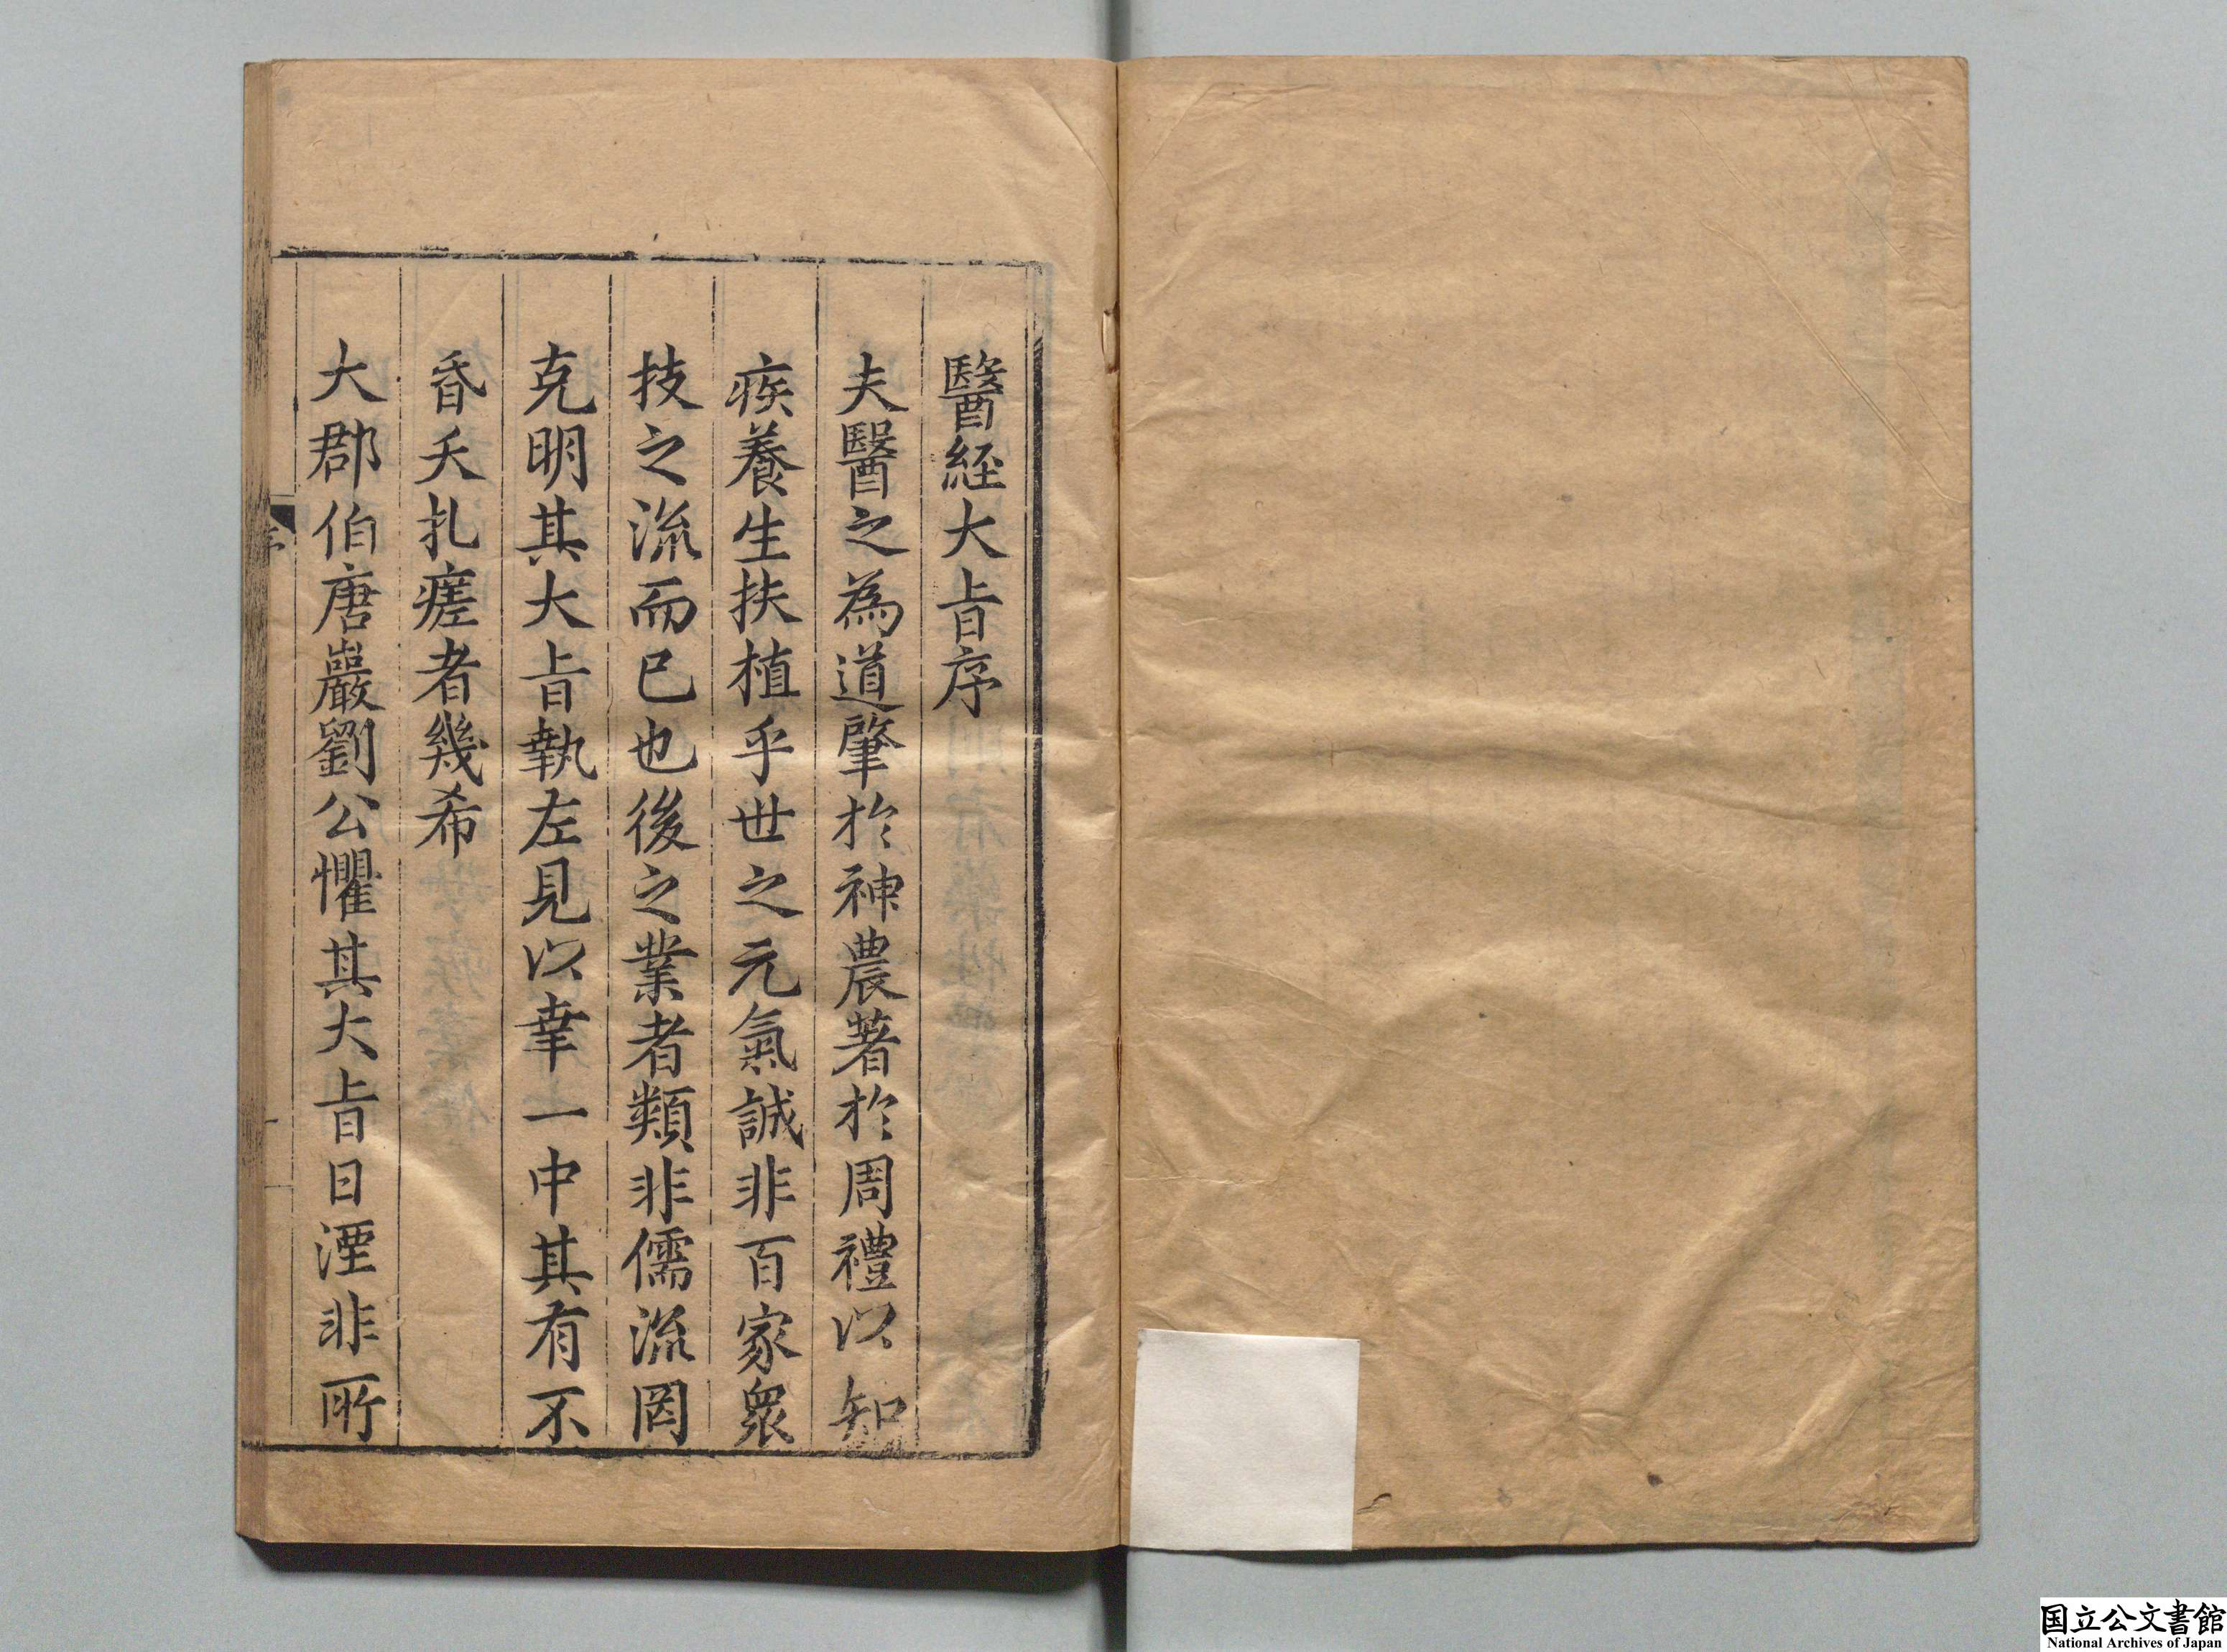 醫経大㫖序
夫醫之為道肇於神農著於周禮以知
疾養生扶植乎世之元氣誠非百家衆
技之流而已也後之業者類非儒流罔
克明其大㫖執左見以幸一中其有不
昏夭扎瘥者幾希
大郡伯唐巖劉公懼其大㫖日湮非所
序
国立公文書館
National Archives of Japan